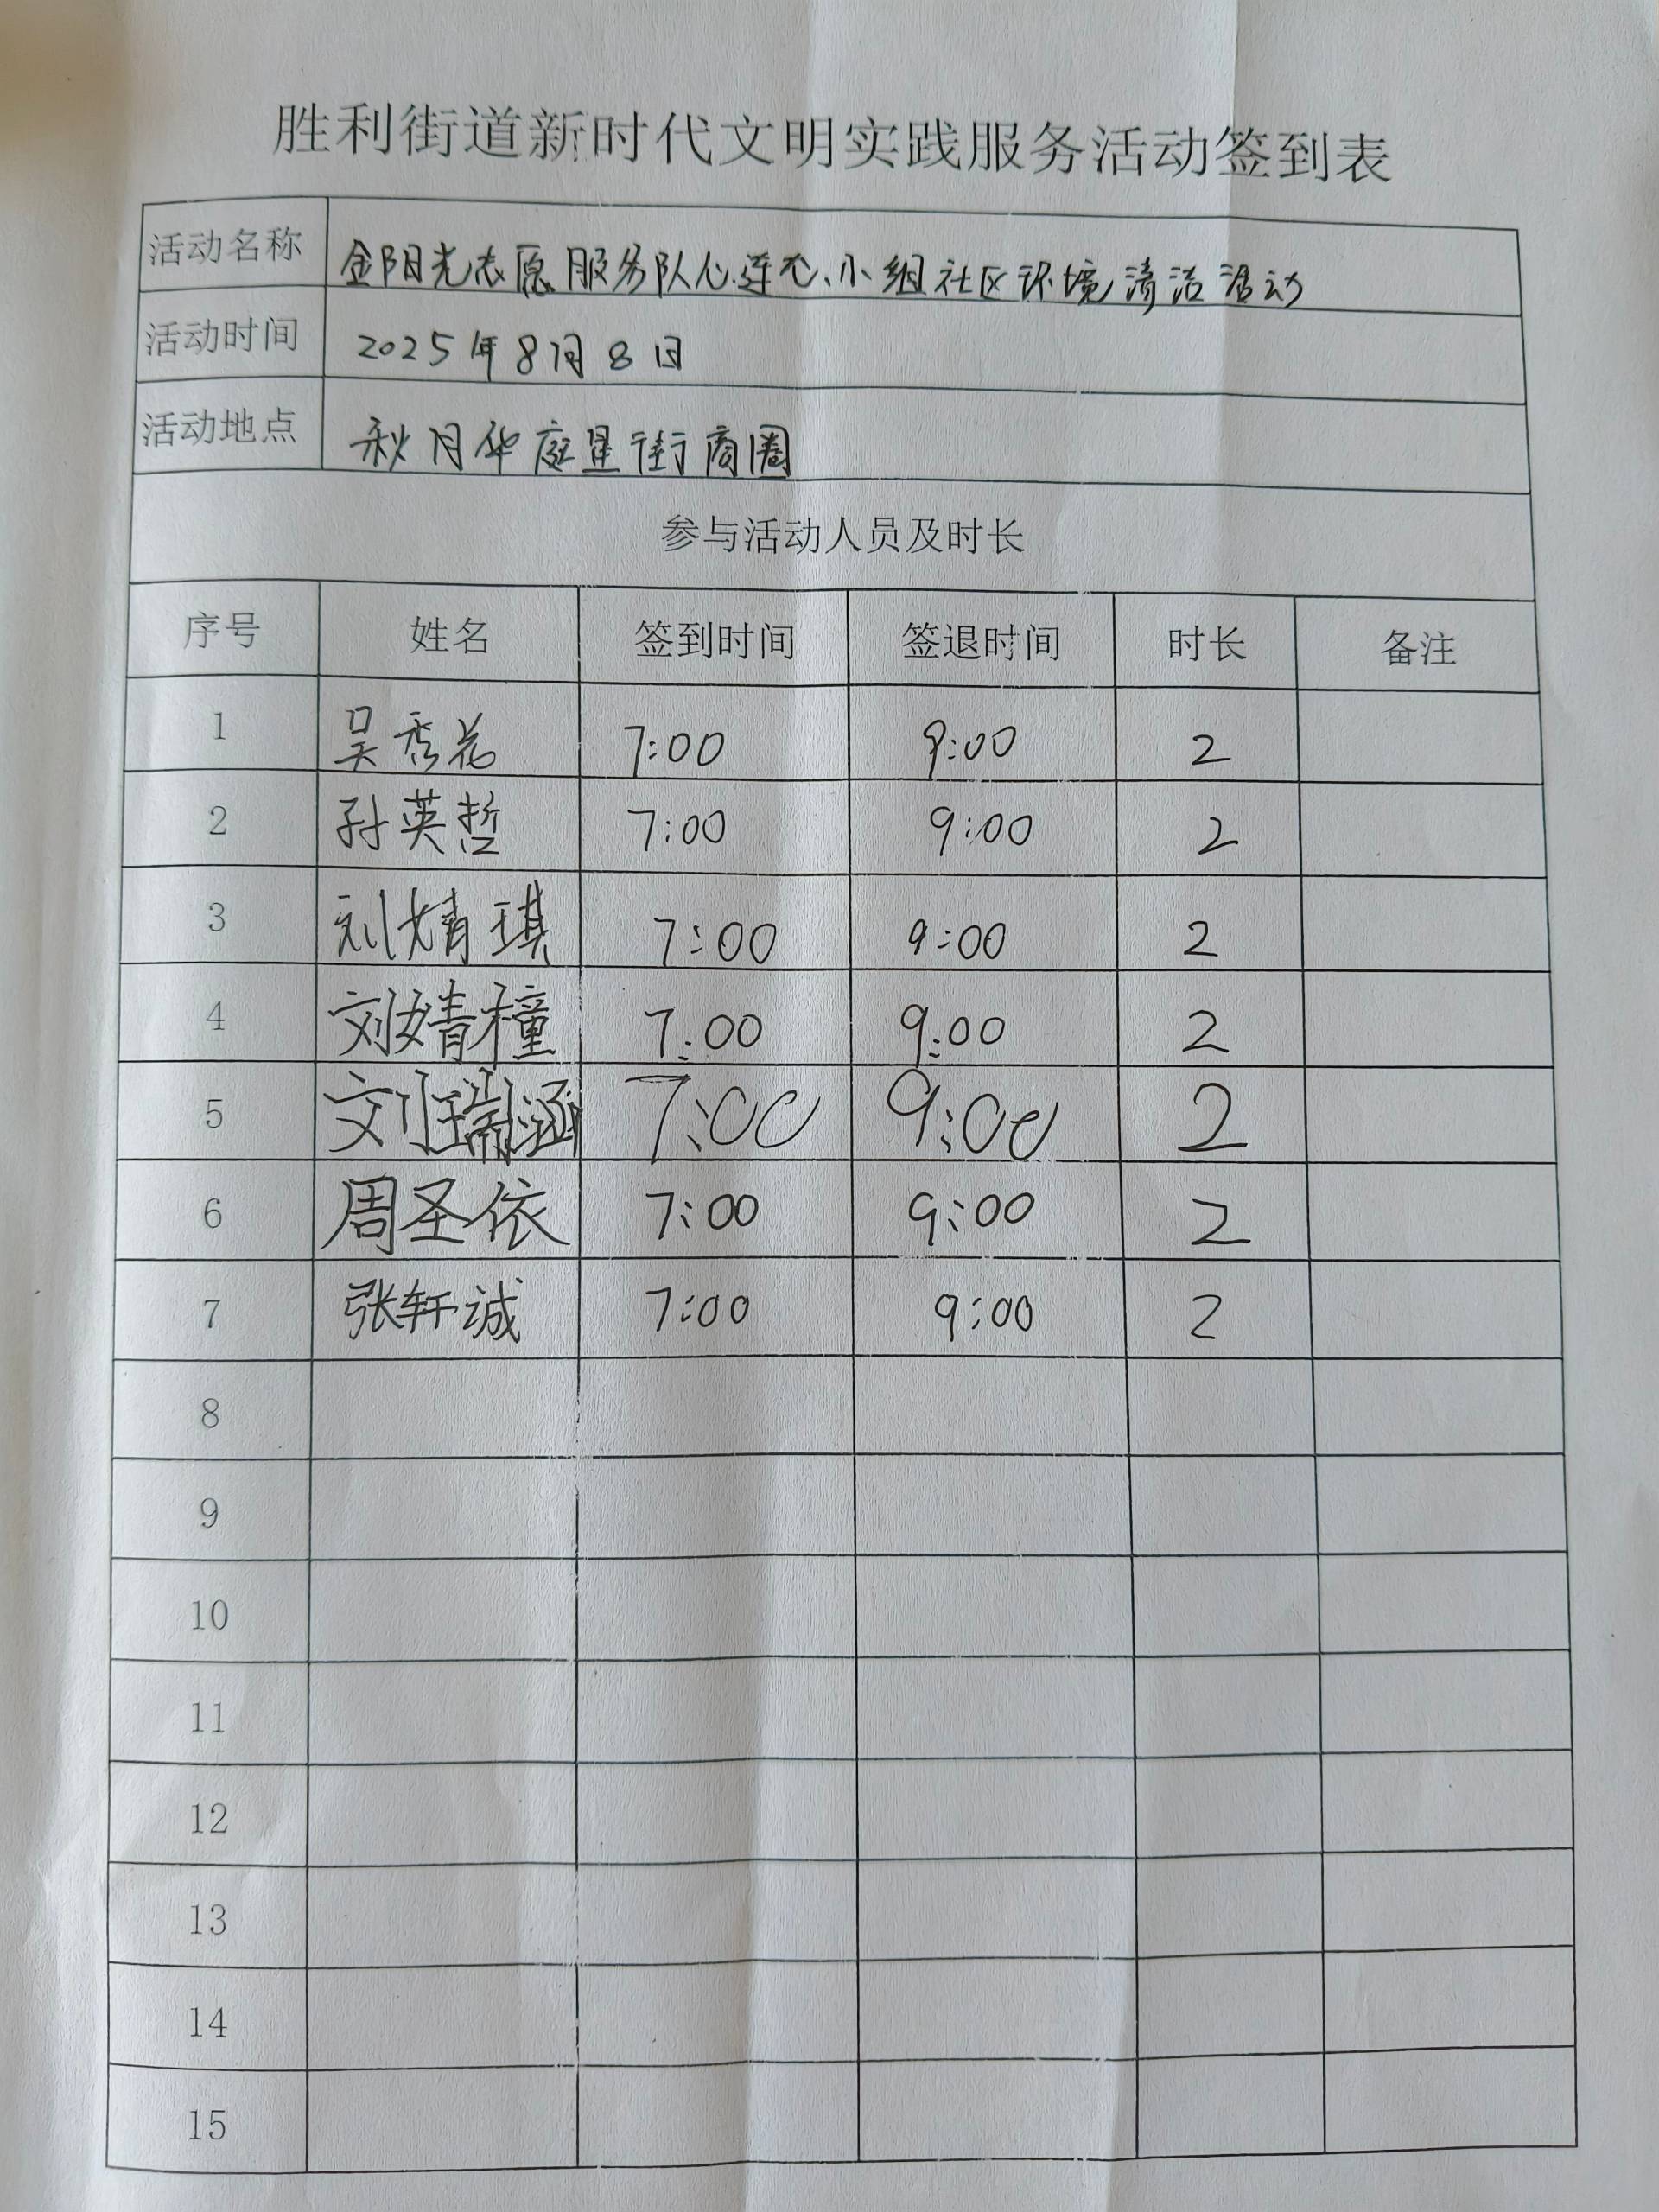 胜利街道新时代文明实践服务活动签到表
活动名称 金阳光志愿服务队心连心小组社区环境清洁活动
活动时间 2025年8月8日
活动地点 秋月华庭星街商圈
参与活动人员及时长
序号 姓名 签到时间 签退时间 时长 备注
1 吴秀花 7:00 9:00 2
2 孙英哲 7:00 9:00 2
3 刘婧琪 7:00 9:00 2
4 刘婧橦 7:00 9:00 2
5 刘瑞涵 7:00 9:00 2
6 周圣依 7:00 9:00 2
7 张轩诚 7:00 9:00 2
8
9
10
11
12
13
14
15